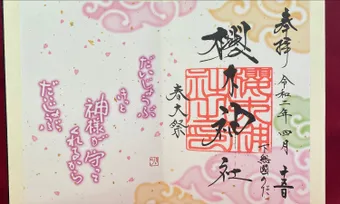 奉拝
令和二年四月十一日
下総国のはな
櫻木神社
櫻木神社之印
春大祭
だいじょうぶ
きっと
神様が守って
くれるから
だいじょうぶ